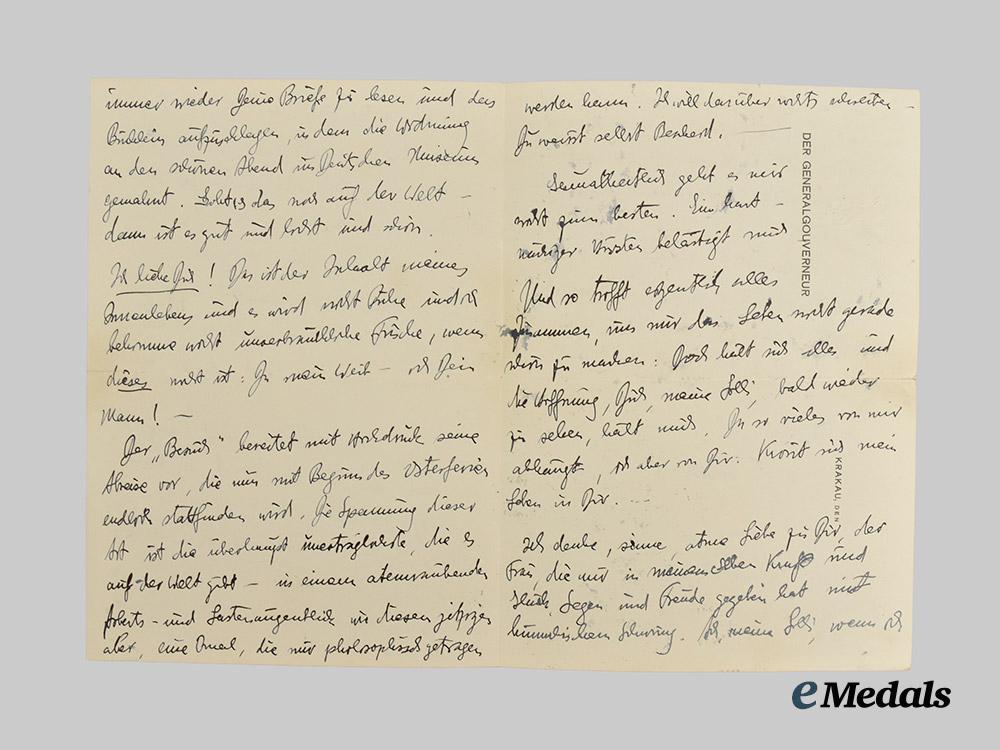 immer wieder Deine Briefe zu lesen und das
Büchlein aufzuschlagen, in dem die Widmung
an den schönen Abend im Deutschen Museum
gemahnt. Gibt es das noch auf der Welt –
dann ist es gut und licht und schön.
Ich liebe Dich! Das ist der Inhalt meines
Innenlebens und es wird nicht Ruhe und ich
bekomme nicht unverbrauchliche Frische, wenn
dieses nicht ist: Du mein Weib – ich Dein
Mann! –
Der „Besuch" bereitet mit Hochdruck seine
Abreise vor, die nun mit Beginn der Osterferien
endlich stattfinden wird. Die Spannung dieser
Art ist die überhaupt unerträglichste, die es
auf der Welt gibt – in einem atemraubenden
Arbeits- und Lastenaugenblick wie diesem jetzigen
aber, eine Qual, die nur philosophisch getragen
werden kann. Ich will darüber nichts schreiben –
Du weisst selbst Bescheid.
Gesundheitlich geht es mir
nicht zum besten. Ein hart-
näckiger Husten belästigt mich
Und so trifft eigentlich alles
zusammen, um mir das Leben nicht gerade
schön zu machen: Doch hält sich alles und
die Hoffnung, Dich, meine Lilli, bald wieder
zu sehen, hält mich. Da so vieles von mir
abhängt, ich aber von Dir. Krönt sich mein
Leben in Dir. –
Ich denke, sinne, atme Liebe zu Dir, der
Frau, die mir in Kraft und
Glück, Segen und Freude gegeben hat mit
himmlischem Schwung. Ach, meine Lilli, wenn ich
DER GENERALGOUVERNEUR
KRAKAU, DEN
eMedals